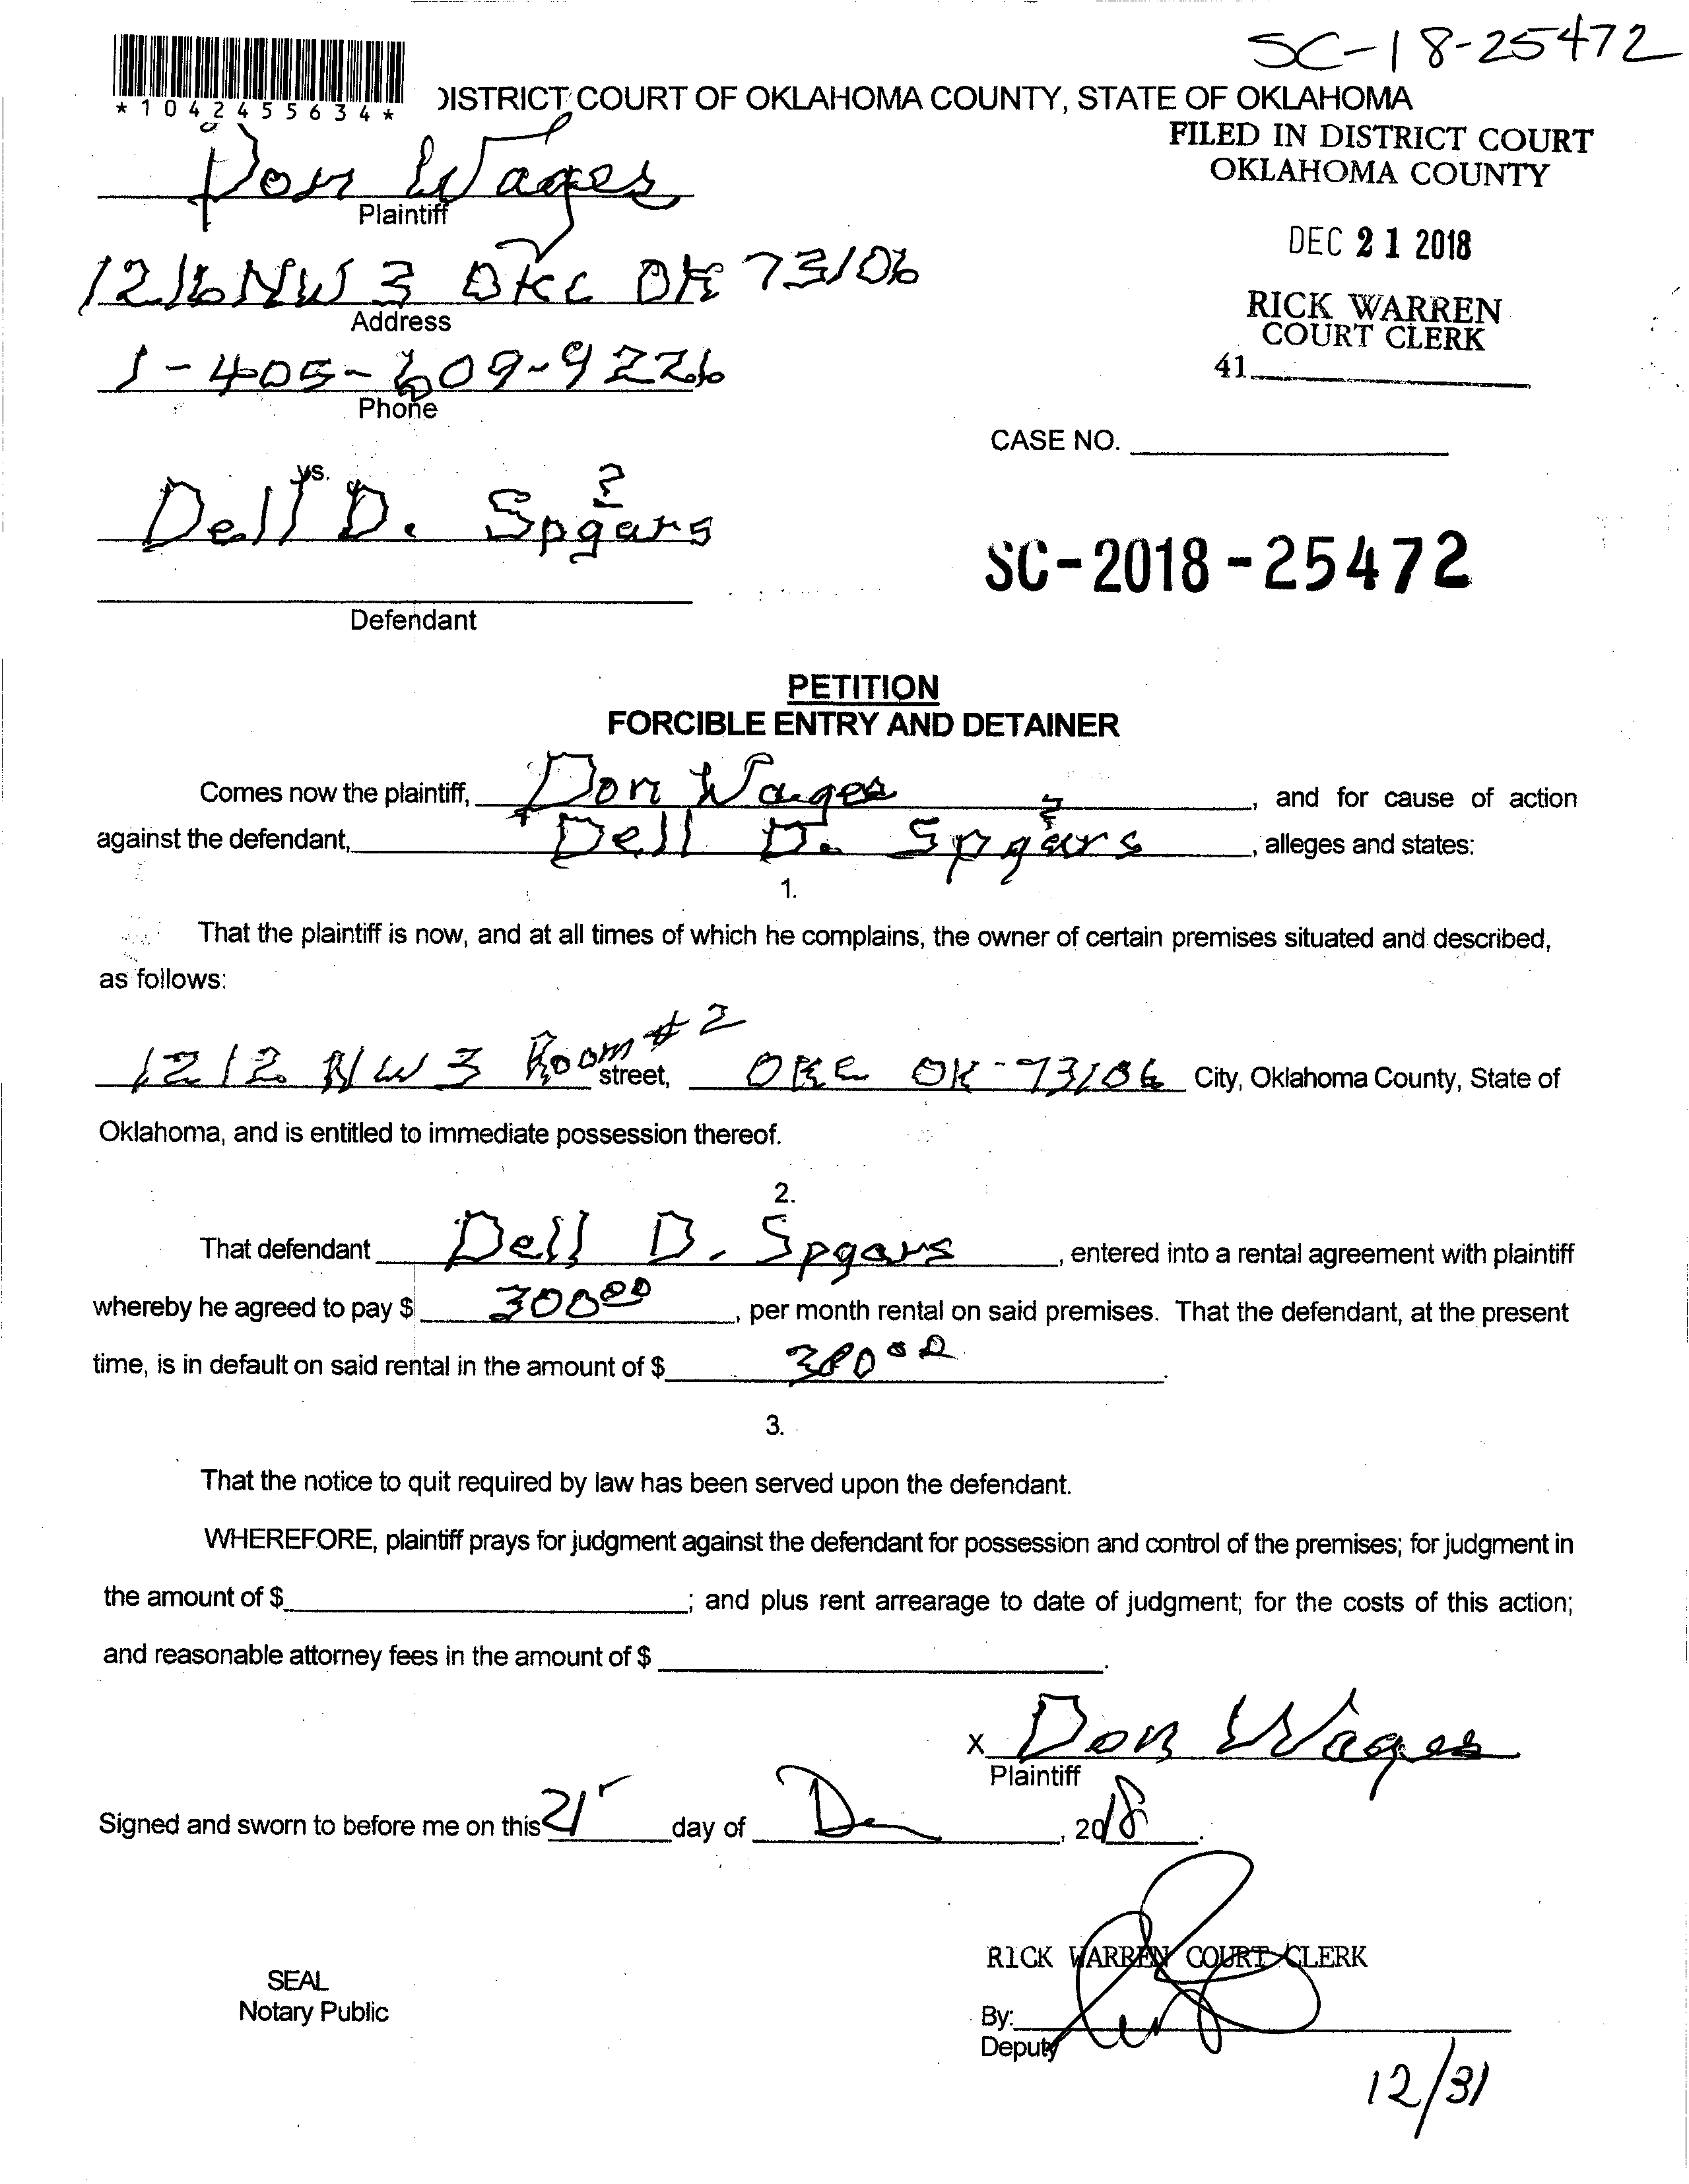 SC-18-25472
*1042455634*
DISTRICT COURT OF OKLAHOMA COUNTY, STATE OF OKLAHOMA
FILED IN DISTRICT COURT
OKLAHOMA COUNTY
Don Wages
Plaintiff
DEC 21 2018
1216 NW 3 OKC OK 73106
Address
RICK WARREN
COURT CLERK
41
1-405-609-9226
Phone
CASE NO.
vs.
?
Dell D. Spgars
SC-2018-25472
Defendant
PETITION
FORCIBLE ENTRY AND DETAINER
Comes now the plaintiff, Don Wages, and for cause of action
against the defendant, Dell D. Spgars, alleges and states:
1.
That the plaintiff is now, and at all times of which he complains, the owner of certain premises situated and described,
as follows:
1212 NW 3 Room #2 street, OKC OK-73106 City, Oklahoma County, State of
Oklahoma, and is entitled to immediate possession thereof.
2.
That defendant Dell D. Spgars, entered into a rental agreement with plaintiff
whereby he agreed to pay $ 300 00, per month rental on said premises. That the defendant, at the present
time, is in default on said rental in the amount of $ 00.
3.
That the notice to quit required by law has been served upon the defendant.
WHEREFORE, plaintiff prays for judgment against the defendant for possession and control of the premises; for judgment in
the amount of $ ; and plus rent arrearage to date of judgment; for the costs of this action;
and reasonable attorney fees in the amount of $ .
X Don Wages
Plaintiff
Signed and sworn to before me on this 21 day of De, 2018.
RICK WARREN COURT CLERK
SEAL
Notary Public
By:
Deputy
12/31